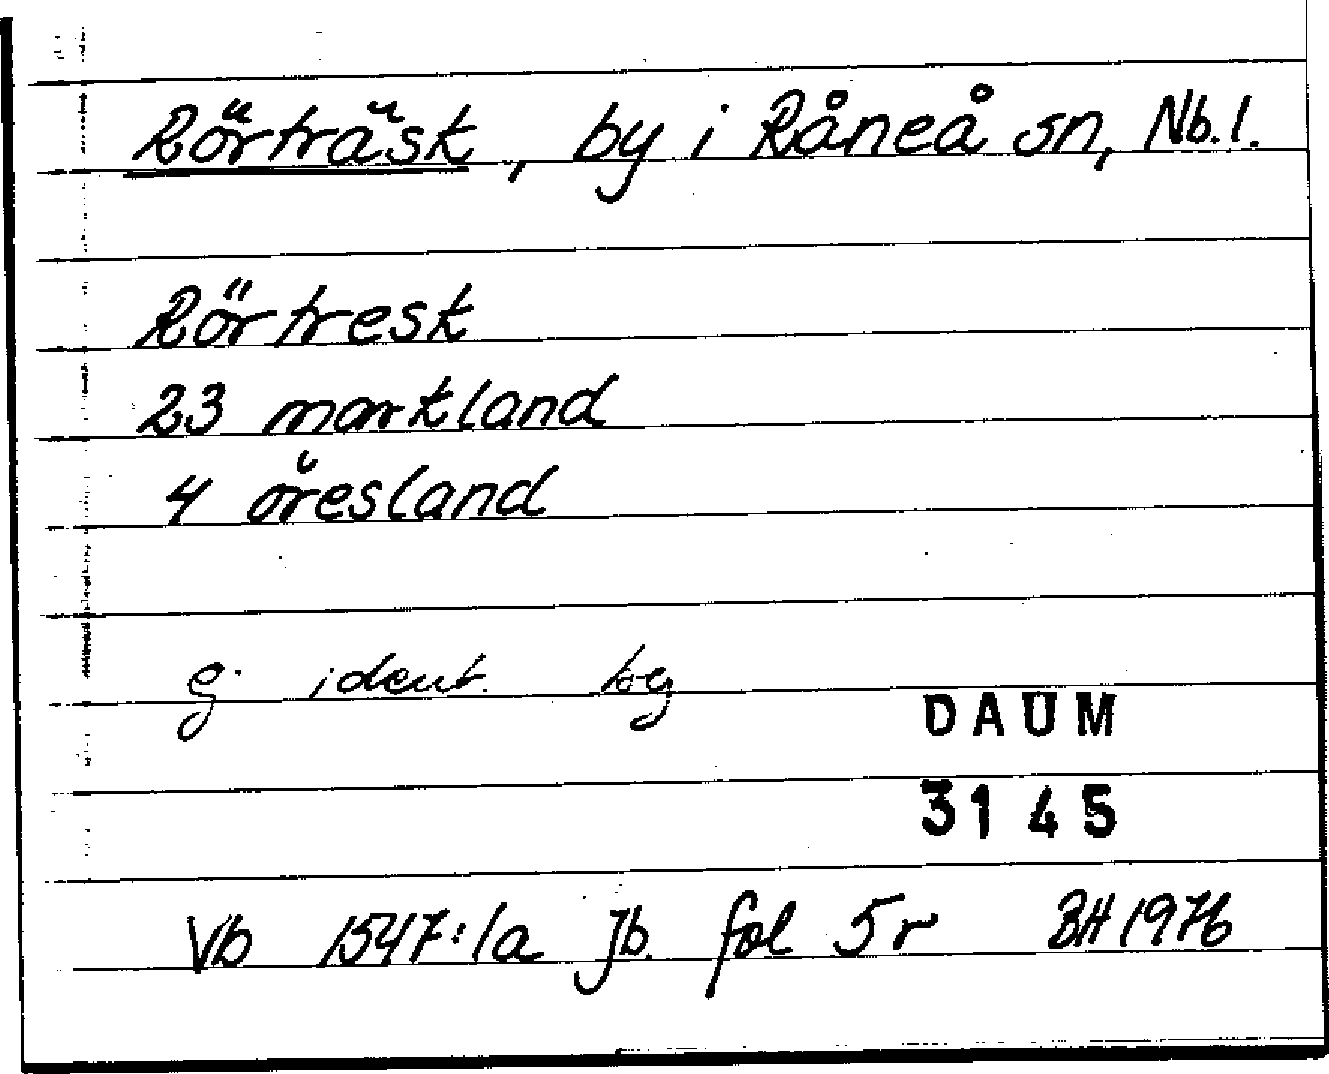 Rörträsk, by i Råneå sn, Nb.l.
Rörtrest
23 markland
4 öresland
ej ident. by
DAUM
3145
Vb 1547:1a Jb. fol 5r BH 1976